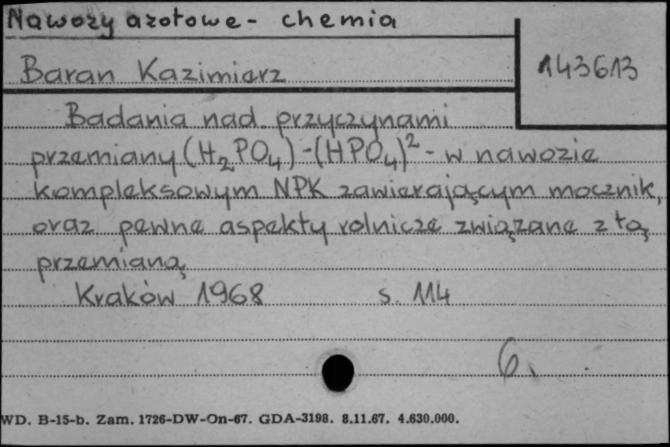 Nawozy azotowe - chemia
Baran Kazimierz
143613
Badania nad przyczynami
przemiany (H2PO4)-(HPO4)2- w nawozie
kompleksowym NPK zawierającym mocznik,
oraz pewne aspekty rolnicze związane z tą
przemianą
Kraków 1968 s. 114
6.
WD. B-15-b. Zam. 1726-DW-On-67. GDA-3198. 8.11.67. 4.630.000.